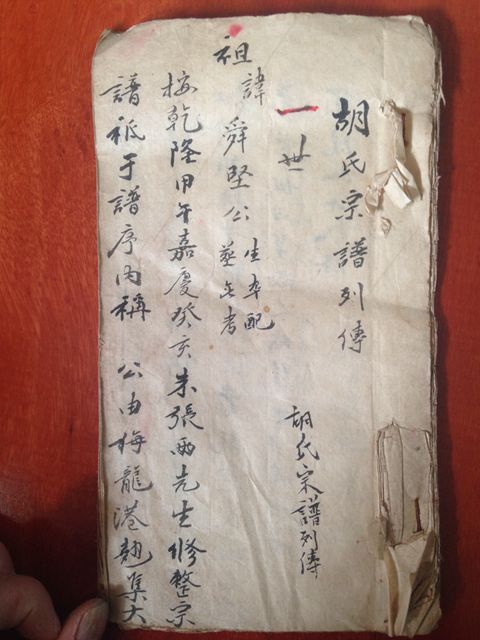 胡氏宗譜列傳
一世
胡氏宗譜列傳
祖
諱舜堅公
生卒配
塟无考
按乾隆甲午嘉慶癸亥朱張兩先生修整宗
譜祗于譜序內稱 公由梅龍港集大